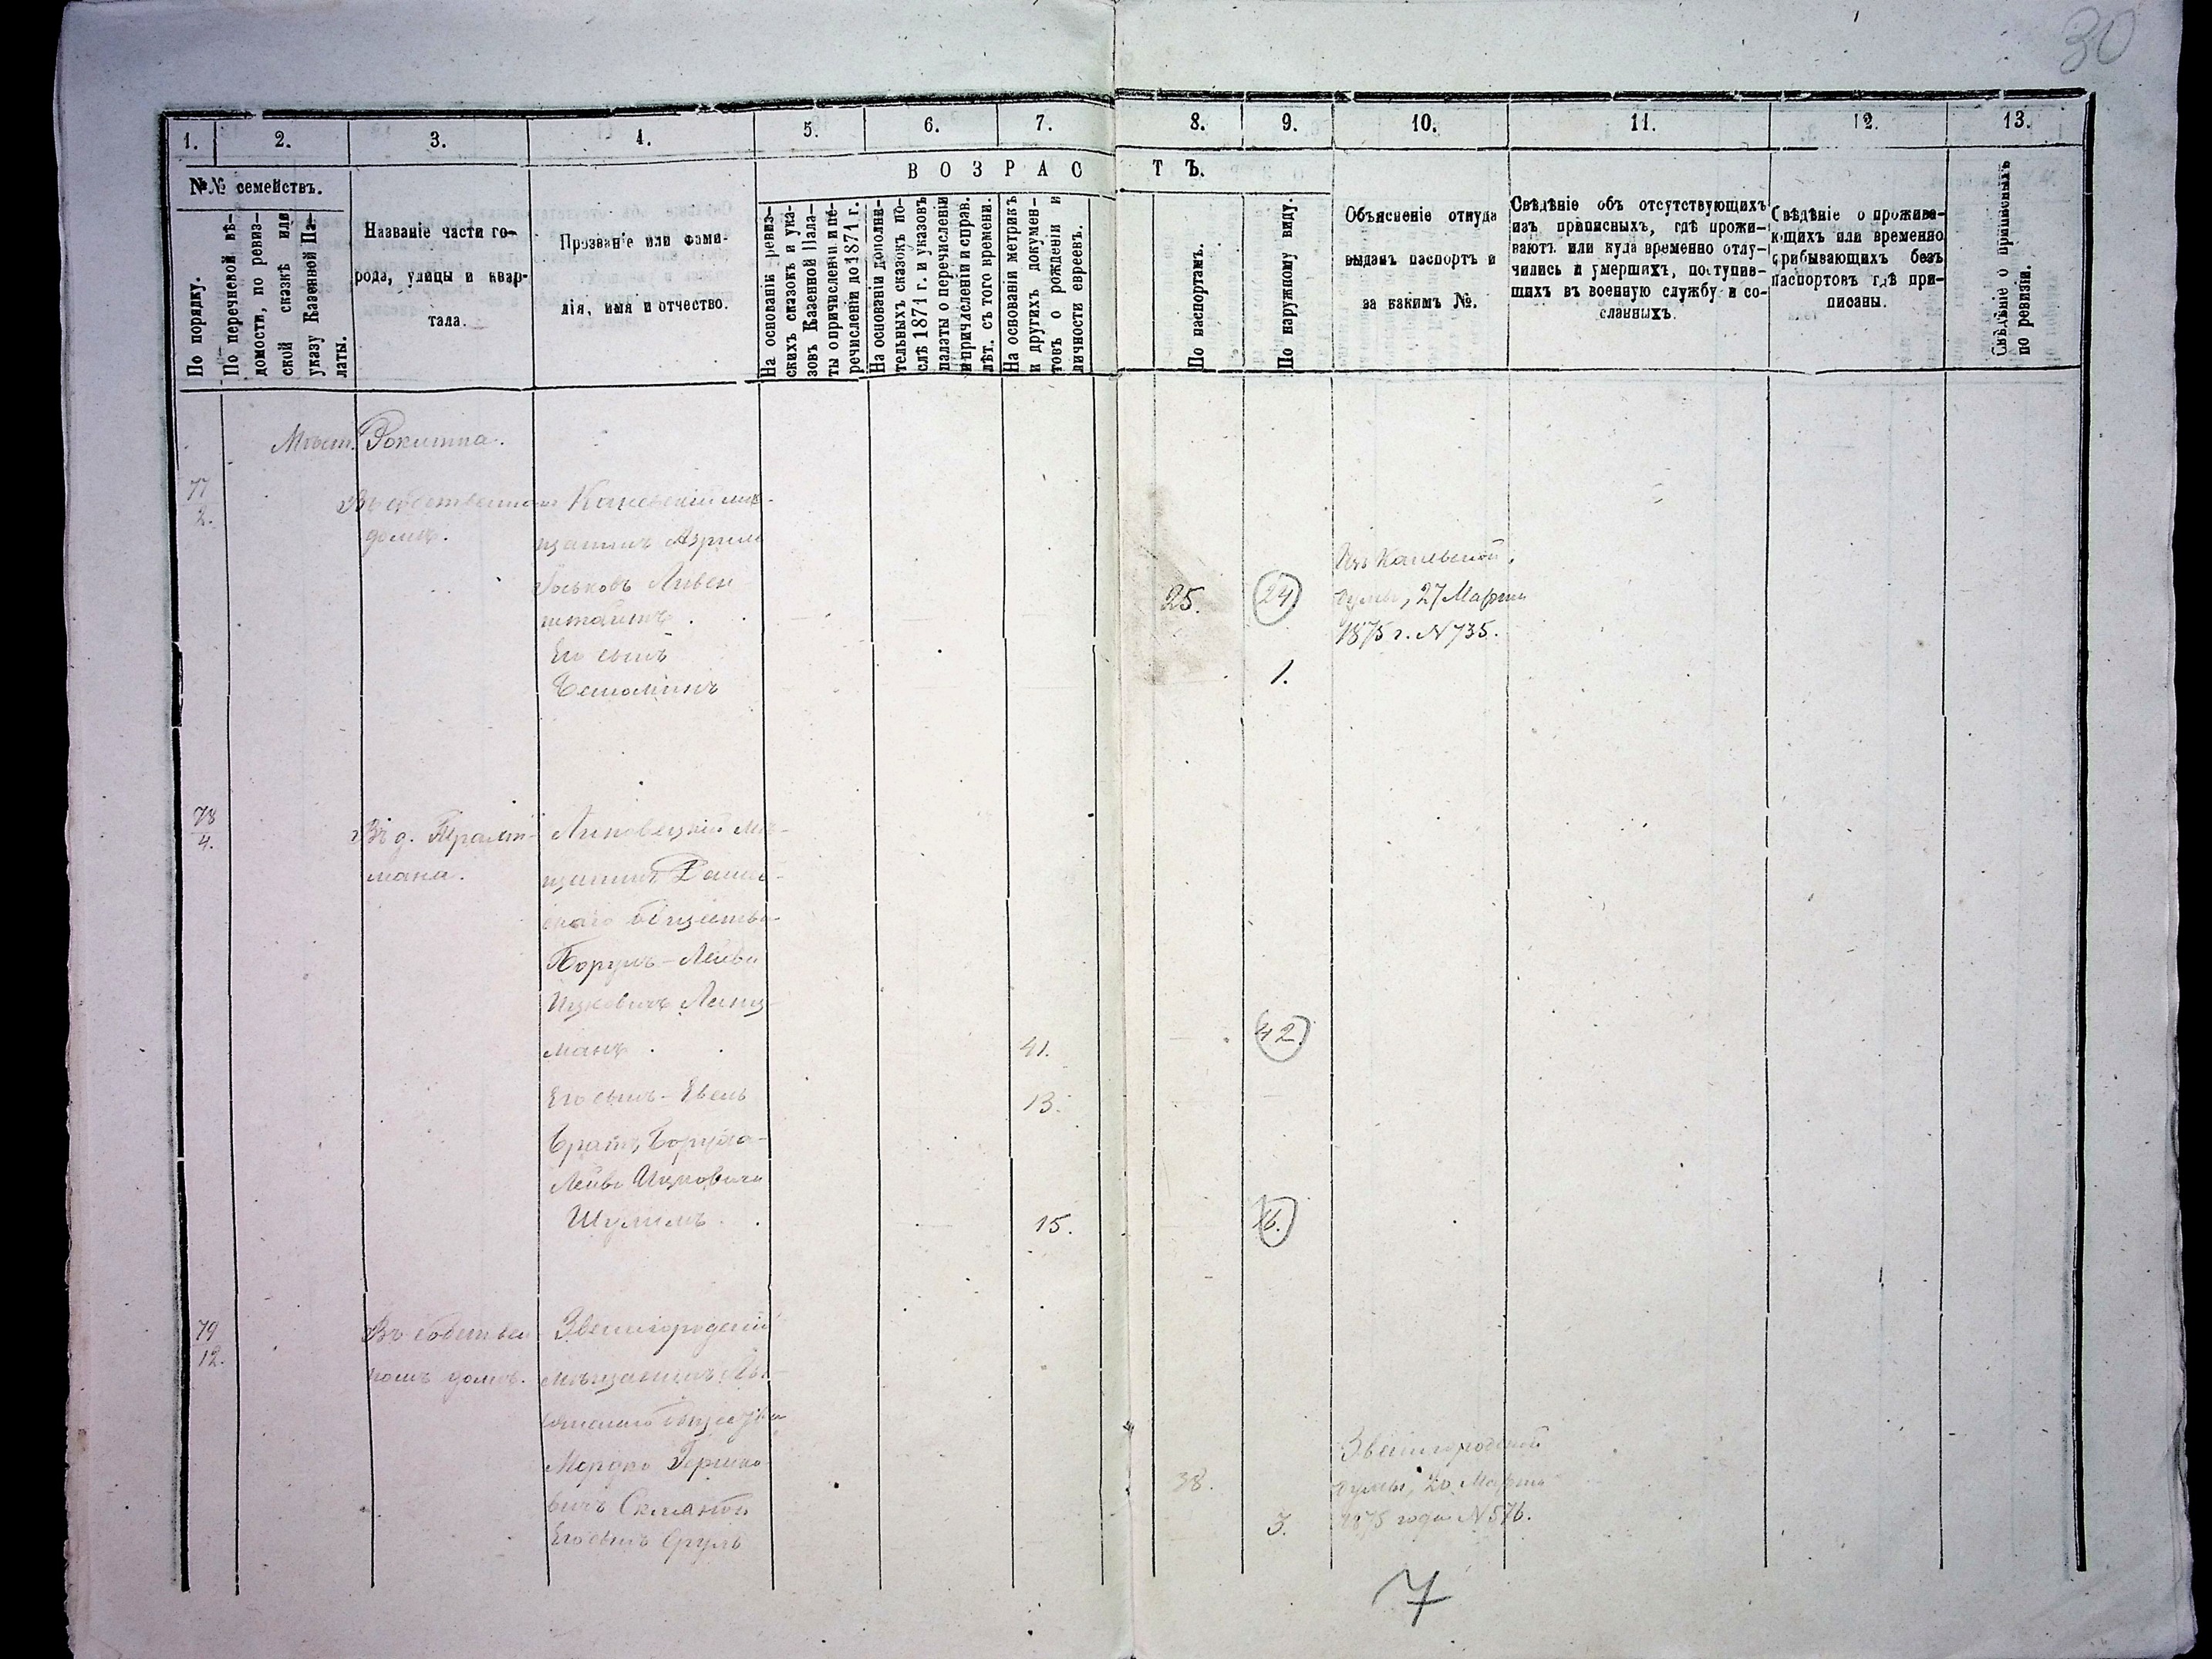 30
1. 2. 3. 4. 5. 6. 7. 8. 9. 10. 11. 12. 13.
№№ семействъ.
По порядку.
По перечневой вѣ-
домости, по ревиз-
ской сказкѣ или
указу Казенной Па-
латы.
Названіе части го-
рода, улицы и квар-
тала.
Прозваніе или фами-
лія, имя и отчество.
ВОЗРАСТЪ.
На основаніи ревиз-
скихъ сказокъ и ука-
зовъ Казенной Пала-
ты о причисленіи и пе-
речисленіи до 1871 г.
На основаніи дополни-
тельныхъ сказокъ по-
слѣ 1871 г. и указовъ
палаты о перечисленіи
и причисленіи и справ.
лѣт. съ того времени.
На основаніи метрикъ
и другихъ докумен-
товъ о рожденіи и
личности евреевъ.
По паспортамъ.
По наружному виду.
Объясненіе откуда
выданъ паспортъ и
за какимъ №.
Свѣдѣніе объ отсутствующихъ
изъ приписныхъ, гдѣ прожи-
ваютъ или куда временно отлу-
чились и умершихъ, поступив-
шихъ въ военную службу и со-
сланныхъ.
Свѣдѣніе о прожива-
ющихъ или временно
прибывающихъ безъ
паспортовъ гдѣ при-
писаны.
Свѣдѣніе о приписныхъ
по ревизіи.
Мѣст. Рокитна.
77
2.
Въ собственномъ
домѣ.
Каневскій мѣ-
щанинъ Азриль
Іоськовъ Ливен
штейнъ .
25.
24
Изъ Каневской
думы, 27 Марта
1875 г. № 735.
Его сынъ
Беніоминъ
1.
78
4.
Въ д. Тралт-
мана.
Липовецкій мѣ-
щанинъ
скаго общества
Борухъ-Лейба
Ицковичъ Ланц-
манъ . .
41.
42.
Его сынъ-
13.
Братъ, Боруха-
Лейбы Ицковича
Шулимъ . .
15.
16.
79
12.
Въ собствен
номъ домѣ.
Звенигородскій
мѣщанинъ
общества
Мордко Гершко
вичъ
38.
Звенигородской
думы, 20 Марта
1875 года № 576.
Его сынъ Сруль
3.
7